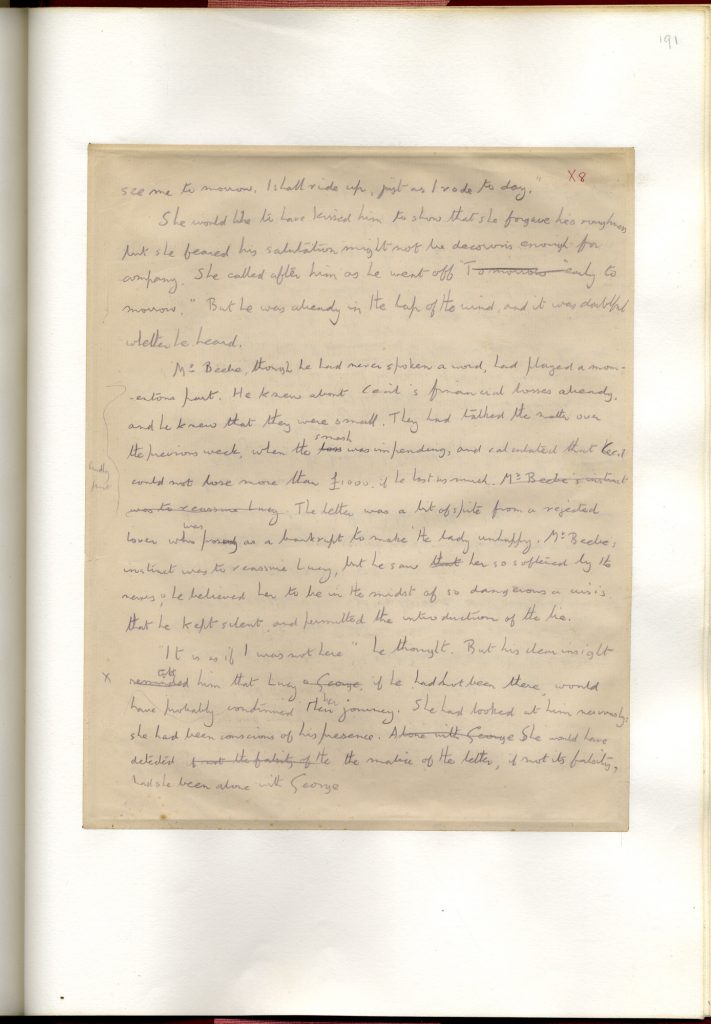 191
X8
see me to morrow. I shall ride up, just as I rode to day."
She would like to have kissed him to show that she forgave his roughness
but she feared his salutation might not be decorous enough for
company. She called after him as he went off "Tomorrow "early to
morrow." But he was already in the lap of the wind, and it was doubtful
whether he heard.
Mr Beebe, though he had never spoken a word, had played a mom-
-entous part. He knew about Cecil's financial losses already,
and he knew that they were small. They had talked the matter over
smash
the previous week, when the loss was impending, and calculated that Cecil
could not lose more than £1000, if he lost as much. Mr Beebe's instinct
was to reassure Lucy. The letter was a bit of spite from a rejected
was
lover who posing as a bankrupt to make the lady unhappy. Mr Beebe's
instinct was to reassure Lucy, but he saw that her so softened by the
news, he believed her to be in the midst of so dangerous a crisis
that he kept silent, and permitted the introduction of the lie.
"It is as if I was not here" he thought. But his clear insight
X
reminded him that Lucy & George, if he had not been there, would
her
have probably continued their journey. She had looked at him nervously:
she had been conscious of his presence. Alone with George She would have
detected if not the falsity of the the malice of the letter, if not its falsity,
had she been alone with George